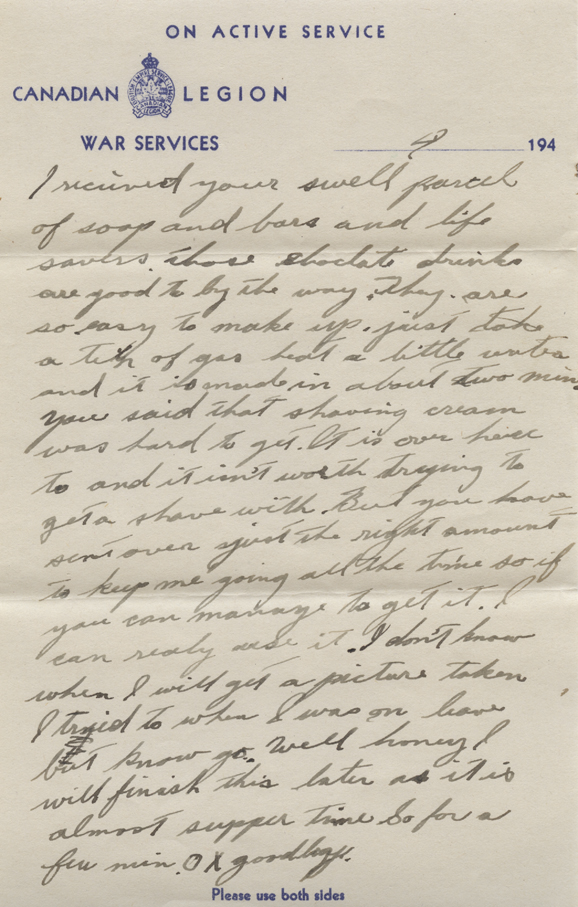 ON ACTIVE SERVICE
CANADIAN LEGION
WAR SERVICES
4 194
I recieved your swell parcel
of soap and bars and life
savers. those choclate drinks
are good to by the way. They are
so easy to make up. just take
a tin of gas heat a little water
and it is made in about two min.
you said that shaving cream
was hard to get. It is over here
to and it isn't worth trying to
get a shave with. But you have
sent over just the right amount
to keep me going all the time so if
you can manage to get it. I
can realy use it. I don't know
when I will get a picture taken
I tryid to when I was on leave
but know go. Well honey I
will finish this later as it is
almost supper time So for a
few min. OX goodbye.
Please use both sides